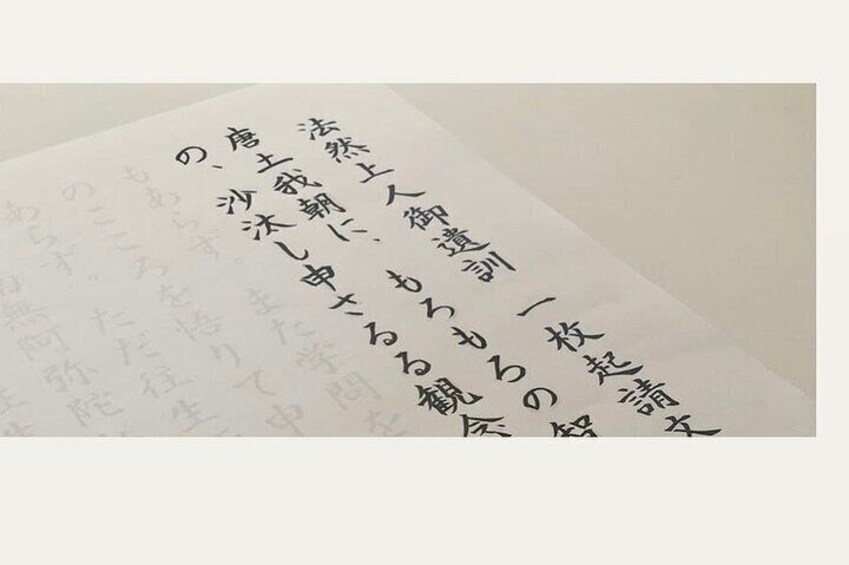 法然上人御遺訓 一枚起請文
唐土我朝に、もろもろの智
の、沙汰し申さるる観念
もあらず。また学問を
のこころを悟りて申
あらず。ただ往生
無阿弥陀